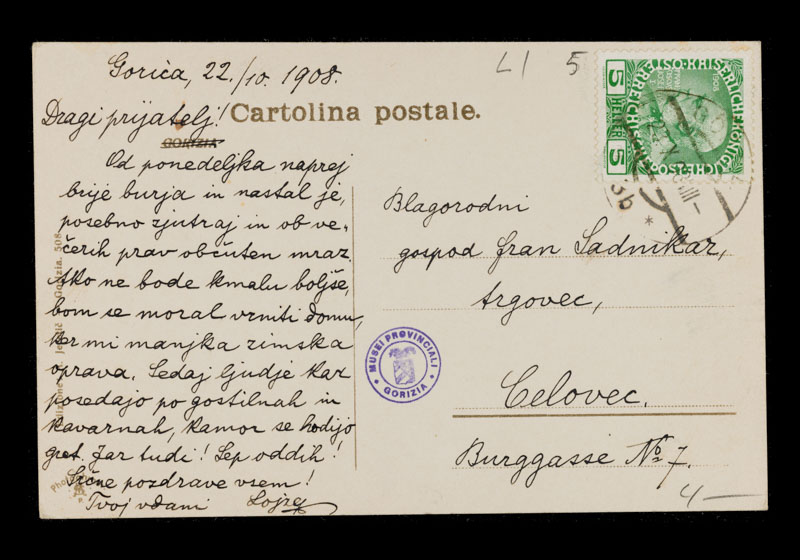 Gorica, 22./10. 1908.
LI 5
Dragi prijatelj!
Cartolina postale.
GORIZIA
Od ponedeljka naprej
brije burja in nastal je,
posebno zjutraj in ob ve-
čerih prav občuten mraz.
Ako ne bode kmalu boljše,
bom se moral vrniti domu,
ker mi manjka zimska
oprava. Sedaj ljudje kar
posedajo po gostilnah in
kavarnah, kamor se hodijo
gret. Jaz tudi! Lep oddih!
Srčne pozdrave vsem!
Tvoj vdani Lojze
Blagorodni
gospod Fran Sadnikar,
trgovec,
Celovec.
Burggasse No 7.
4 —
MUSEI PROVINCIALI
GORIZIA
5 HELLER 5
KAISERLICHE KÖNIGLICHE
1908
3b
Gorizia. 508